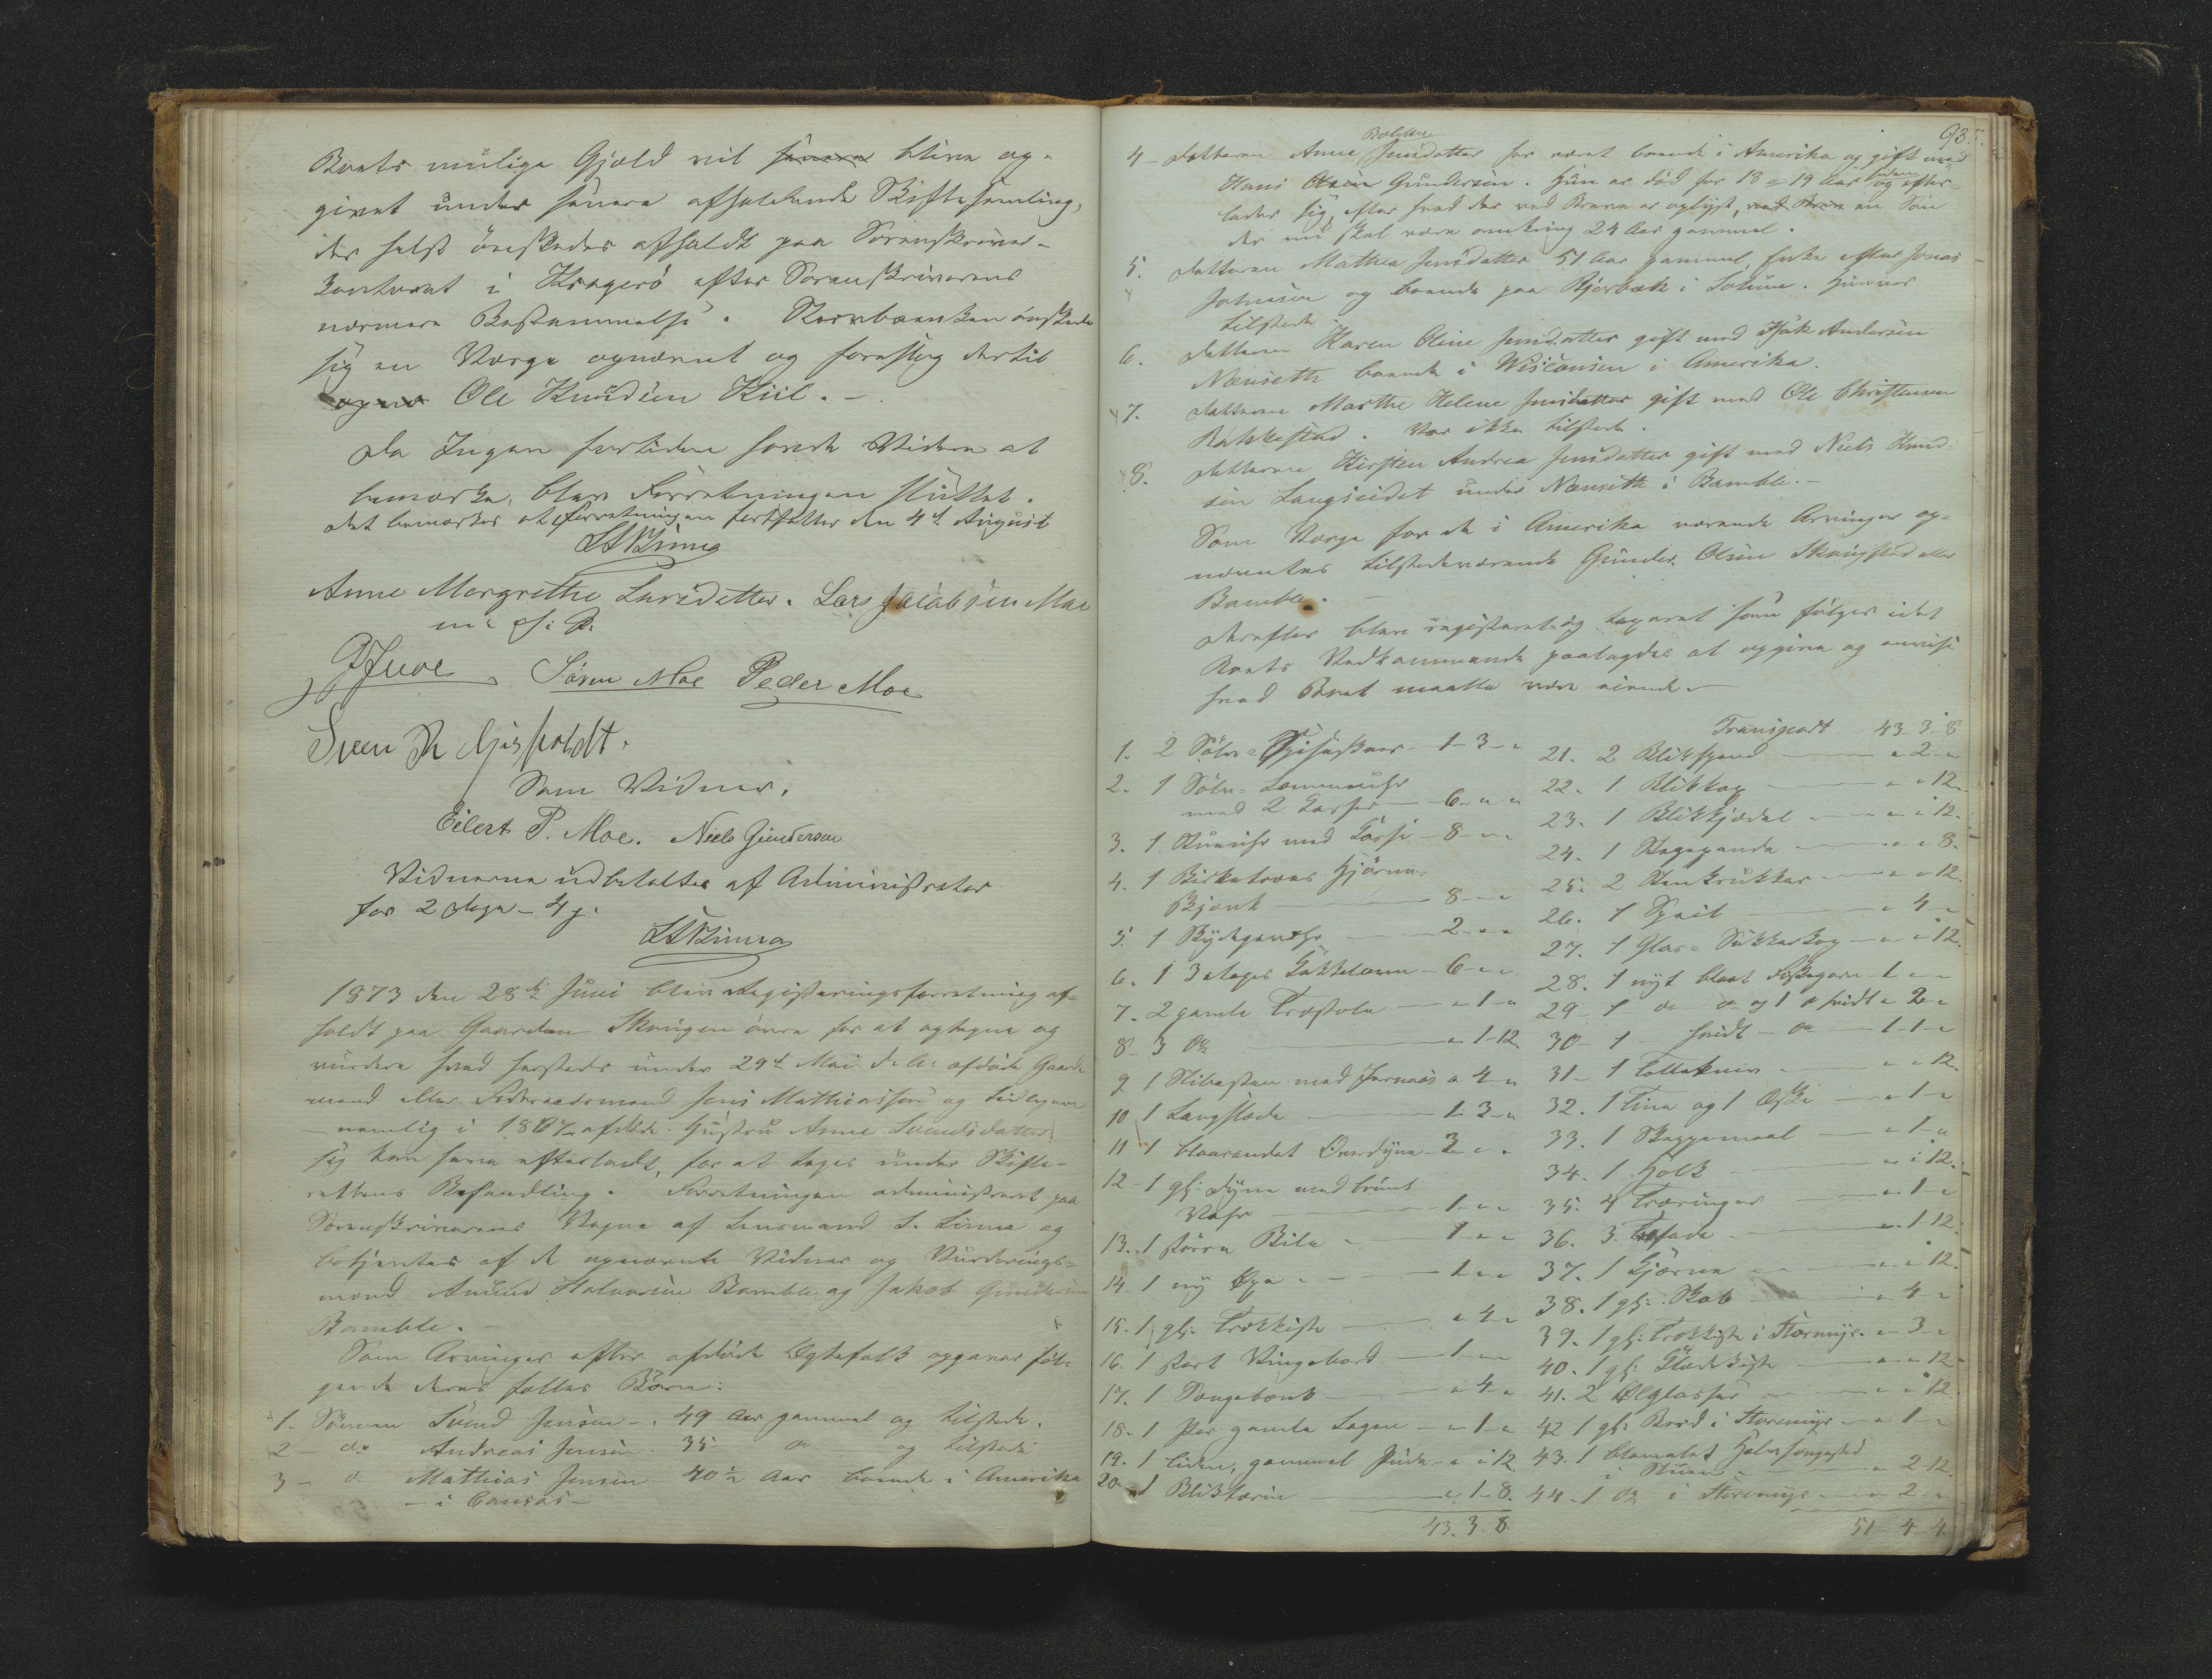 Boets mulige Gjæld vil senere blive op-
givet under senere afholdende Skiftesamling,
der helst önskedes afholdt paa Sorenskriver-
kontoret i Kragerö efter Sorenskriverens
nærmere Bestemmelse. önskede
sig en Værge opnævnt og foreslog dertil
Ole Knudsen Kiil. -
Da Ingen fortiden havde Videre at
bemærke, blev Forretningen sluttet.
Det bemærkes at forretningen fortsattes den 4de August
Anne Margrethe Larsdatter. Lars Jacobsen Moe
m. f. P.
Søren Moe Peder Moe
Som Vidner,
Eilert P. Moe. Niels Gundersen
Vidnerne udbetaltes af Administrator
for 2 Dage - 4
1873 den 28de Juni blev Registreringsforretning af-
holdt paa Gaarden Skougen övre for at optegne og
vurdere hvad hersteds under 29de Mai d. A. afdöde Gaard-
mand eller Föderaadsmand Jens Mathiassen og tidligere
- nemlig i 1867 - afdöde Hustru Anne Svendsdatter
sig kan have efterladt, for at tages under Skifte-
rettens Behandling. Forretningen administreret paa
Sorenskriverens Vegne af Lensmand S. Linna og
betjentes af de opnævnte Vidner og Vurderings-
mænd Halvorsen Bamble og Jakob Gundersen
Bamble. -
Som Arvinger efter afdöde Egtefolk opgaves föl-
gende deres fælles Börn:
1- Sönnen Svend Jensen - 49 Aar gammel og tilstede.
2 - do Andreas Jensen. 35 do og tilstede
3 - do Mathias Jensen 40½ Aar boende i Amerika
- i Cansas -
93.
4 - Datteren Anne Jensdatter har været boende i Amerika og gift med
Hans Gundersen. Hun er död for 18 a 19 Aar siden og efter-
lader sig, efter hvad der ved Breve er oplyst, en Sön
der nu skal være omkring 24 Aar gammel.
5. Datteren Mathea Jensdatter 51 Aar gammel Enke efter Jonas
Johnsen og boende paa Bjerbæk i Solum. Hun var
tilstede.
6. Datteren Karen Oline Jensdatter gift med Isak Andersen
Nenseth boende i Wisconsin i Amerika.
7. Datteren Marthe Helene Jensdatter gift med Ole Christensen
Rakkestad. Var ikke tilstede.
8. Datteren Kirsten Andrea Jensdatter gift med Niels Knud-
sen Langseidet under Nenseth i Bamble. -
Som Værge for de i Amerika værende Arvinger op-
nævntes tilstedeværende Gunder Olsen Skougstad
Bamble. -
Derefter blev registreret og taxeret som fölger idet
Boets Vedkommende paalagdes at opgive og anvise
hvad Boet maatte være eiende. -
1. 2 Sölv-Spiseskeer - 1-3-"
2. 1 Sölv-Lommeuhr
med 2 Kasser - 6-"-"
3. 1 Stueuhr med Kasse - 8-"-"
4. 1 Birketræes Hjörne-
Skjænk - 8-"-"
5. 1 - 2-"-"
6. 1 3 etages Kakkelovn - 6-"-"
7. 2 gamle Træstole - "-1-"
8. 3 do - "-1-12.
9 1 Slibesten med " 4-"
10 1 Langslæde - 1-3-"
11 1 blaarandet Overdyne - 2-"-"
12 - 1 gl: Dyne med brunt
Vahr - 1-"-"
13. 1 större Bile - 1-"-"
14 1 ny Öxe - 1-"-"
15. 1 gl: Trækkiste - "-4-"
16. 1 stort Vingebord - 1-"-"
17. 1 Sengebænk - "-4-"
18. 1 Par gamle Lagen - "-1-"
19. 1 liden, gammel Pude - "-"-12.
20 - 1 Bliktærin - "-1-8.
43. 3. 8.
Transport 43-3-8
21. 2 Blikspand - "-2-"
22. 1 Blikkop - "-"-12.
23. 1 Blikkjedel - "-"-12.
24. 1 Stegepande - "-"-8.
25. 2 Stenkrukker - "-"-12.
26. 1 Speil - "-4-"
27. 1 Glas-Sukkerkop - "-"-12.
28. 1 nyt blaat Fiskegarn - 1-"-"
29 - 1 do do og 1 do hvidt - " 2-"
30 - 1 - hvidt - do - 1-1-"
31 - 1 Tollekniv - "-"-12.
32. 1 Tine og 1 Æske - "-1-"
33. 1 Skjeppemaal - "-1-"
34. 1 Holk - "-"-12.
35. 4 Træringer - "-1-"
36. 3 Træfade - "-1-12.
37. 1 Kjærne - "-"-12.
38. 1 gl: Skab - "-4-"
39. 1 gl: Trækkiste i Storemyr - "-3-"
40. 1 gl: Klædekiste - "-"-12
41. 2 Ölglasser - "-"-12
42 1 gl: Bord i Storemyr - "-1-"
43. 1 blaamalet Halvsengested
i Stuen - "-2-12.
44 - 1 do i Storemyr - "-2-"
51 4-4.